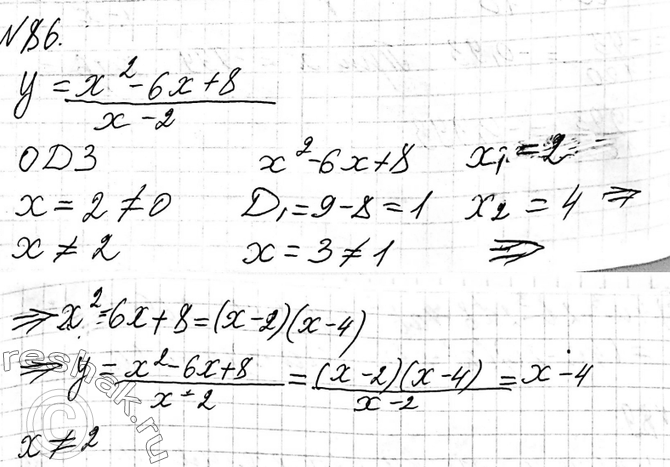 №86.
y = x² - 6x + 8 / x - 2
ОДЗ x² - 6x + 8 x₁ = 2
x = 2 ≠ 0 D₁ = 9 - 8 = 1 x₂ = 4 ⇒
x ≠ 2 x = 3 ≠ 1 ⇒
⇒ x² - 6x + 8 = (x - 2)(x - 4)
⇒ y = x² - 6x + 8 / x - 2 = (x - 2)(x - 4) / x - 2 = x - 4
x ≠ 2
reshak.ru